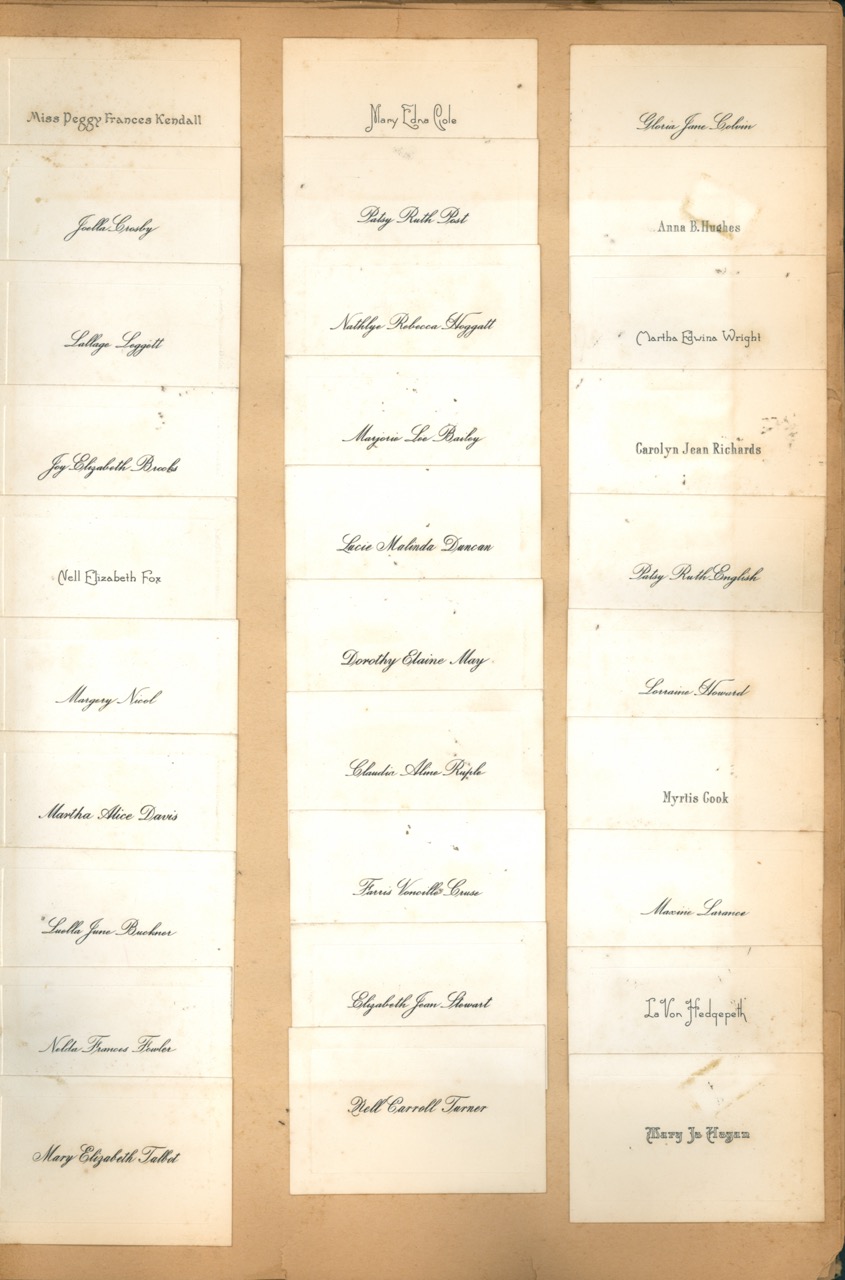 Miss Peggy Frances Kendall
Joella Crosby
Lallage Leggett
Joy Elizabeth Brooks
Nell Elizabeth Fox
Margery Nicol
Martha Alice Davis
Luella June Buckner
Nelda Frances Fowler
Mary Elizabeth Talbot
Mary Edna Cole
Patsy Ruth Post
Nathlye Rebecca Hoggatt
Marjorie Lee Bailey
Lucie Malinda Duncan
Dorothy Elaine May
Claudia Aline Ruple
Farris Voncille Cruse
Elizabeth Jean Stewart
Nell Carroll Turner
Gloria Jane Colvin
Anna B. Hughes
Martha Edwina Wright
Carolyn Jean Richards
Patsy Ruth English
Lorraine Howard
Myrtis Cook
Maxine Larance
La Von Hedgepeth
Mary Jo Hagan